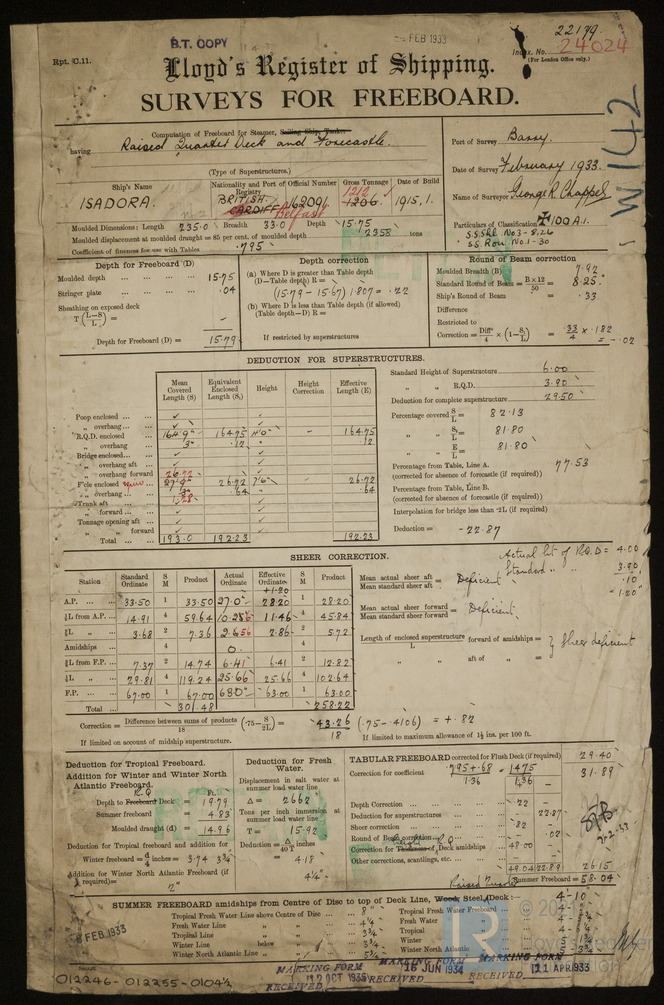 B.T. COPY
FEB 1933
22179
Rpt. C.11.
Index. No. 24024
(For London Office only.)
Lloyd's Register of Shipping.
SURVEYS FOR FREEBOARD.
W142
Computation of Freeboard for Steamer, Sailing Ship, Tanker
having Raised Quarter Deck and Forecastle.
(Type of Superstructures.)
Port of Survey Barry.
Date of Survey February 1933.
Name of Surveyor George R. Chappel
Particulars of Classification ✠100A1.
S.S. No 3 - 8.26
S.S. No. 1-30
Ship's Name Nationality and Port of Registry Official Number Gross Tonnage Date of Build
ISADORA. BRITISH CARDIFF Belfast 162091 1206 1212 1915,1.
Moulded Dimensions: Length 235.0 Breadth 33.0 Depth 15.75
Moulded displacement at moulded draught = 85 per cent. of moulded depth 2358 tons
Coefficient of fineness for use with Tables .795
Depth for Freeboard (D)
Moulded depth 15.75
Stringer plate .04
Sheathing on exposed deck
T (L-S/L) = -
Depth for Freeboard (D) = 15.79
Depth correction
(a) Where D is greater than Table depth
(D-Table depth) R =
(15.79 - 15.67) 1.807 = .22
(b) Where D is less than Table depth (if allowed)
(Table depth-D) R =
If restricted by superstructures
Round of Beam correction
Moulded Breadth (B) 7.92
Standard Round of Beam = B×12/50 = 8.25
Ship's Round of Beam = .33
Difference
Restricted to
Correction = Diff/4 × (1-S/L) = .33/4 × .182
= -.02
DEDUCTION FOR SUPERSTRUCTURES.
Mean Covered Length (S) Equivalent Enclosed Length (S₁) Height Height Correction Effective Length (E)
Poop enclosed
„ overhang
R.Q.D. enclosed 164'9" 164.75 4'0" - 164.75
„ overhang 3" .12 .12
Bridge enclosed
„ overhang aft
„ overhang forward 26.72
F'cle enclosed 27'9" 26.72 7'6" 26.72
„ overhang 1.28 .64 .64
Trunk aft
„ forward
Tonnage opening aft
„ „ forward
Total 193.0 192.23 192.23
Standard Height of Superstructure 6.00
„ „ R.Q.D. 3.90
Deduction for complete superstructure 29.50
Percentage covered S/L = 82.13
„ „ S₁/L = 81.80
„ „ E/L = 81.80
Percentage from Table, Line A. 77.53
(corrected for absence of forecastle (if required))
Percentage from Table, Line B.
(corrected for absence of forecastle (if required))
Interpolation for bridge less than ·2L (if required)
Deduction = -22.87
SHEER CORRECTION.
Actual ht of R.Q.D = 4.00
Standard „ „ 3.90
.10
= 1.20"
Station Standard Ordinate S M Product Actual Ordinate Effective Ordinate S M Product
+1.20
A.P. 33.50 1 33.50 27.0 28.20 1 28.20
⅙L from A.P. 14.91 4 59.64 10.256 11.46 4 45.84
⅓L „ 3.68 2 7.36 2.656 2.86 2 5.72
Amidships 4 0. 4
⅓L from F.P. 7.37 2 14.74 6.41 6.41 2 12.82
⅙L „ 29.81 4 119.24 25.66 25.66 4 102.64
F.P. 67.00 1 67.00 63.0 63.00 1 63.00
Total 301.48 258.22
Mean actual sheer aft / Mean standard sheer aft = Deficient
Mean actual sheer forward / Mean standard sheer forward = Deficient
Length of enclosed superstructure/L forward of amidships =
„ aft of „ = } Sheer deficient
Correction = Difference between sums of products/18 (·75-S/2L) = 43.26/18 (.75-.4106) = +.82
If limited on account of midship superstructure.
If limited to maximum allowance of 1½ ins. per 100 ft.
Deduction for Tropical Freeboard.
Addition for Winter and Winter North Atlantic Freeboard.
Ft.
Depth to Freeboard R.Q. Deck = 19.79
Summer freeboard = 4.83
Moulded draught (d) = 14.96
Deduction for Tropical freeboard and addition for
Winter freeboard = d/4 inches = 3.74 3¾"
Addition for Winter North Atlantic Freeboard (if required) = 2"
Deduction for Fresh Water.
Displacement in salt water at summer load water line
Δ = 2662
Tons per inch immersion at summer load water line
T = 15.92
Deduction = Δ/40T inches
= 4.18
4¼"
TABULAR FREEBOARD corrected for Flush Deck (if required) 29.40
Correction for coefficient .795+.68/1.36 = 1.475/1.36 31.89
Depth Correction .22 -
Deduction for superstructures - 22.87
Sheer correction .82
Round of Beam correction .02
Correction for Thickness of Deck amidships 48.00
Other corrections, scantlings, etc.
49.04 22.89 26.15
Summer Freeboard = 58.04
2-2-33
SUMMER FREEBOARD amidships from Centre of Disc to top of Deck Line, Wood, Steel, Deck:- 4-10
Tropical Fresh Water Line above Centre of Disc 8"
Fresh Water Line „ „ 4¼
Tropical Line „ „ 3¾
Winter Line below „ 3¾
Winter North Atlantic Line „ „ 5¾
Tropical Fresh Water Freeboard
Fresh Water „
Tropical „
Winter „
Winter North Atlantic „
8 FEB 1933
MARKING FORM 12 OCT 1935 RECEIVED
MARKING FORM 16 JUN 1934 RECEIVED
MARKING FORM 21 APR 1933 RECEIVED
012246-012255-0104½